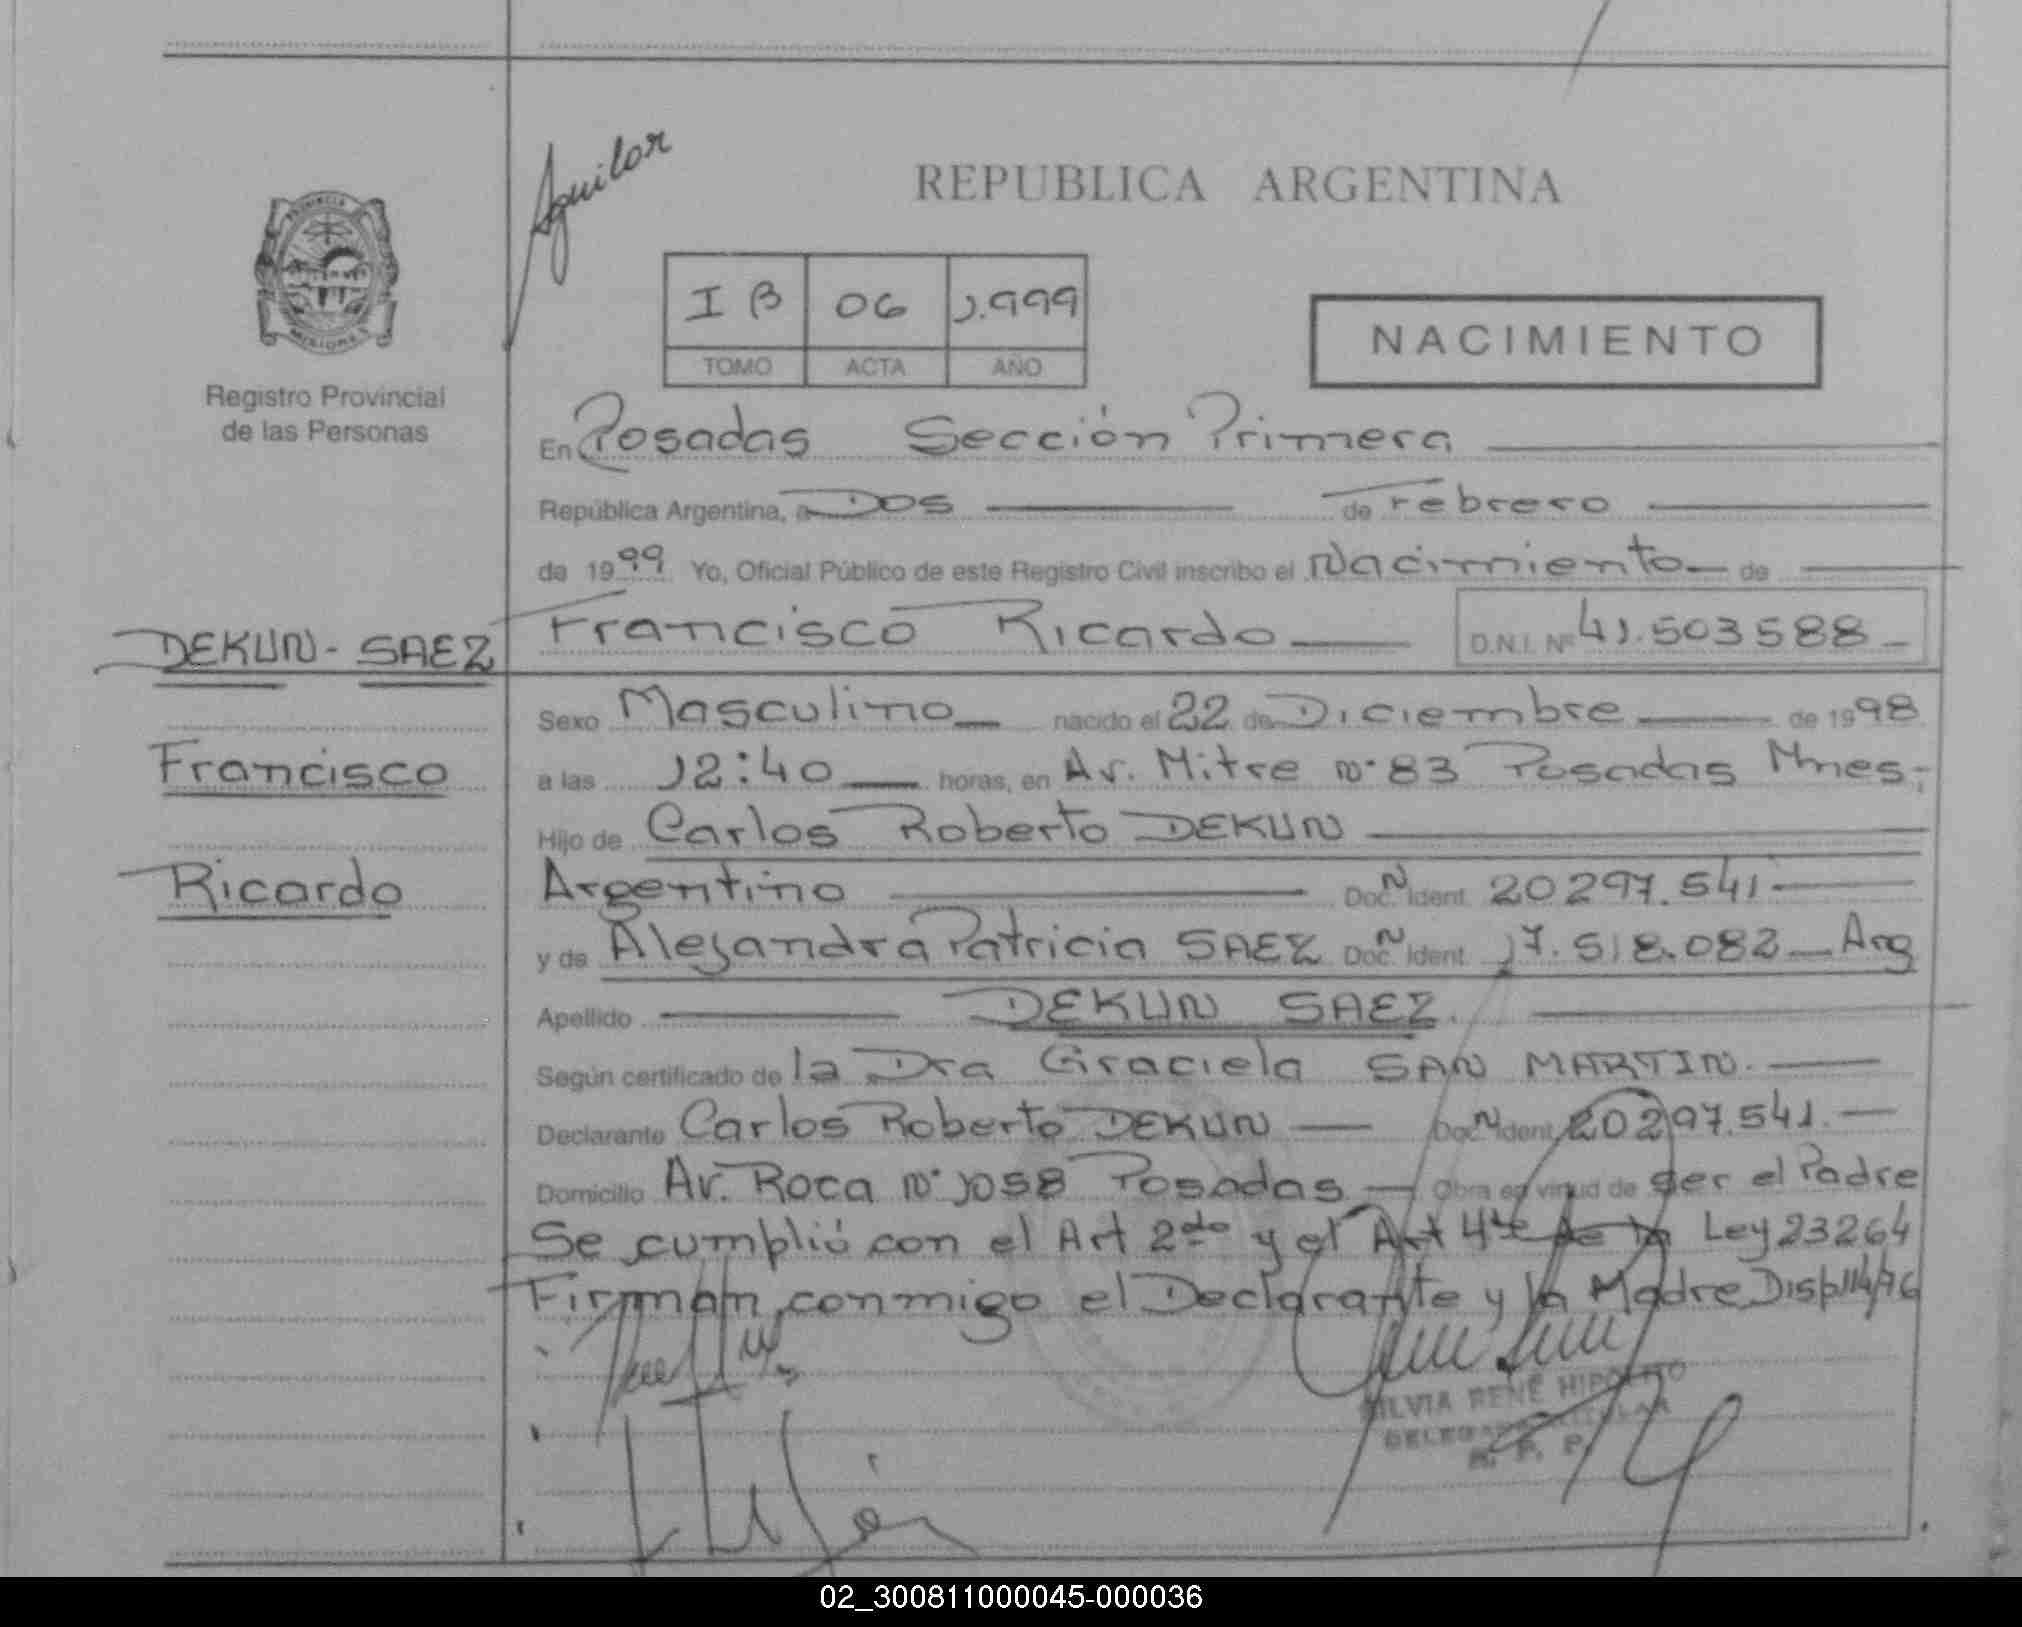 Aguilar
REPUBLICA ARGENTINA
PROVINCIA
MISIONES
I B 06 1.999
TOMO ACTA AÑO
NACIMIENTO
Registro Provincial
de las Personas
En Posadas Sección Primera
República Argentina, a Dos de Febrero
de 1999 Yo, Oficial Público de este Registro Civil inscribo el Nacimiento de
DEKUN - SAEZ Francisco Ricardo D.N.I. Nº 41.503588
Sexo Masculino nacido el 22 de Diciembre de 1998
Francisco a las 12:40 horas, en Av. Mitre Nº 83 Posadas Mnes.
Hijo de Carlos Roberto DEKUN
Ricardo Argentino Doc. N Ident. 20297.541
y de Alejandra Patricia SAEZ Doc. N Ident. 17.518.082 Arg
Apellido DEKUN SAEZ.
Según certificado de la Dra Graciela SAN MARTIN.
Declarante Carlos Roberto DEKUN Doc. N Ident. 20297.541.
Domicilio Av. Roca Nº 1058 Posadas Obra en virtud de ser el Padre
Se cumplió con el Art 2do y el Art 4to de la Ley 23264
Firman conmigo el Declarante y la Madre Disp 114/76
SILVIA RENÉ HIPOLITO
DELEGADA TITULAR
R. P. P.
02_300811000045-000036